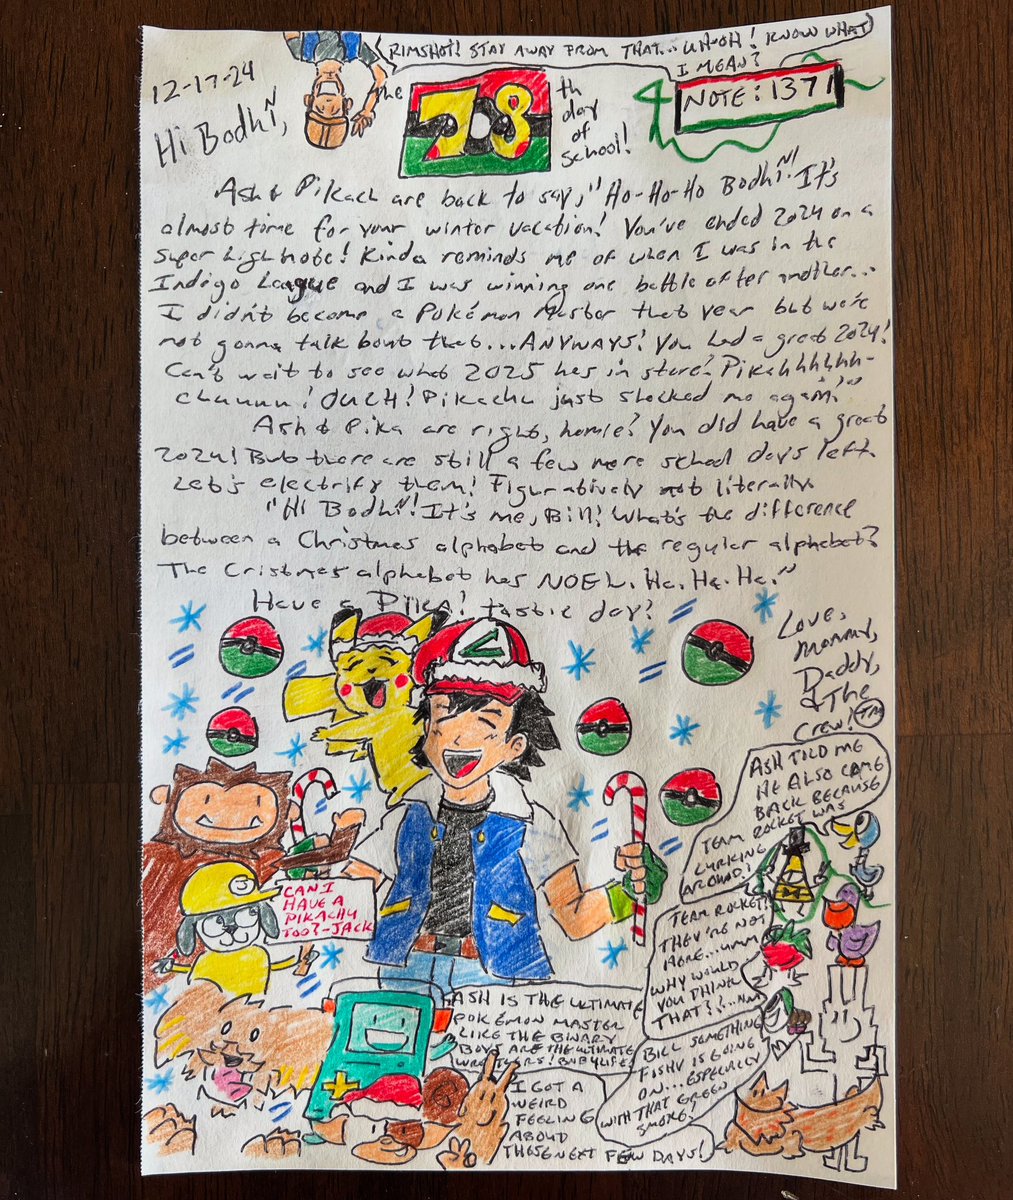 RIMSHOT! STAY AWAY FROM THAT... UH-OH! KNOW WHAT
I MEAN?
12-17-24
The
78
th
day
of
school!
NOTE: 1371
Hi Bodhi,
Ash & Pikach are back to say, "Ho-Ho-Ho Bodhi! It's
almost time for your winter vacation! You've ended 2024 on a
super high note! Kinda reminds me of when I was in the
Indigo League and I was winning one battle after another...
I didn't become a Pokémon Master that year but we're
not gonna talk bout that... ANYWAYS! You had a great 2024!
Can't wait to see what 2025 has in store! Pikahhhhhh-
chuuuu! OUCH! Pikachu just shocked me again!"
Ash & Pika are right, homie! You did have a great
2024! But there are still a few more school days left.
Let's electrify them! Figuratively not literally.
"Hi Bodhi! It's me, Bill! What's the difference
between a Christmas alphabet and the regular alphabet?
The Cristmas alphabet has NOEL. Ha. Ha. Ha."
Have a Pika! tastic day!
Love,
Mommy,
Daddy,
& The
Crew! TM
ASH TOLD ME
HE ALSO CAME
BACK BECAUSE
TEAM ROCKET WAS
LURKING
AROUND!
CAN I
HAVE A
PIKACHU
TOO?-JACK
TEAM ROCKET?
THEY'RE NOT
HERE...UMM
WHY WOULD
YOU THINK
THAT?
BILL SOMETHING
FISHY IS GOING
ON... ESPECIALLY
WITH THAT GREEN
SMOKE!
ASH IS THE ULTIMATE
POKÉMON MASTER
LIKE THE BINARY
BOYS ARE THE ULTIMATE
WRESTLERS!
I GOT A
WEIRD
FEELING
ABOUT
THESE NEXT FEW DAYS!